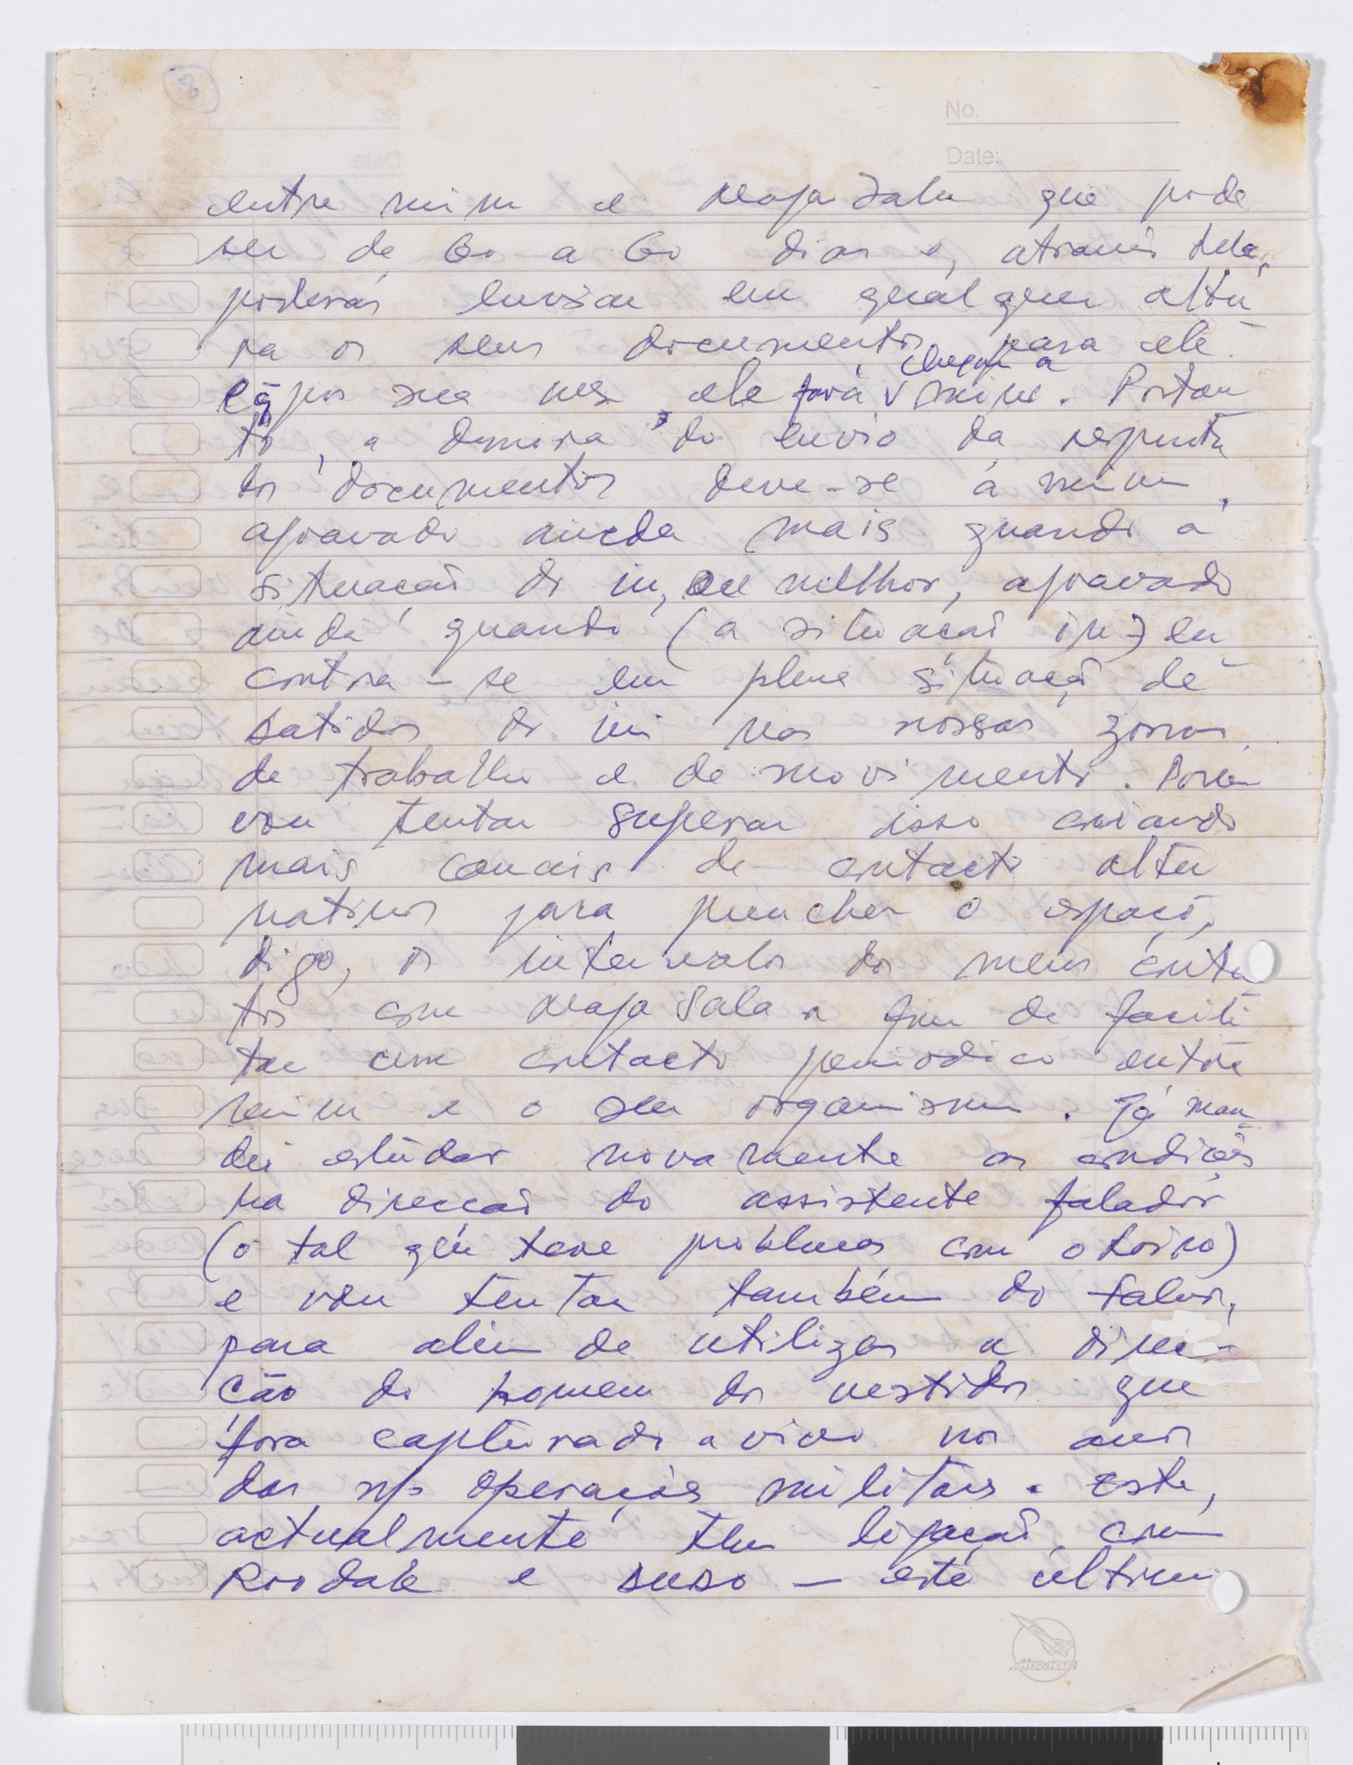 No.
Date:
entre mim e Maja Sala que pode
ser de 60 a 60 dias e, através dele,
poderás enviar em qualquer altu
ra os seus documentos para ele
e, por sua vez, ele fará chegar a
mim. Portan
to, a demora do envio da resposta
dos documentos deve-se à mim,
agravado ainda mais quando a
situação do in, ou melhor, agravado
ainda quando (a situação in) en
contra-se em plena situação de
batidas do ini nas nossas zonas
de trabalho e de movimento. Porém
vou tentar superar isso criando
mais canais de contacto alter
nativos para preencher o espaço,
digo, os intervalos dos meus conta
tos com Maja Sala a fim de facili
tar um contacto periodico entre
mim e o seu organismo. Já man
dei estudar novamente as condições
na direcção do assistente falador
(o tal que teve problemas com o
e vou tentar também do
para além de utilizar a direc-
ção do homem dos vestidos que
fora capturado a vivo nos anos
das n/s operações militares. Este,
actualmente tem ligação com
e este último